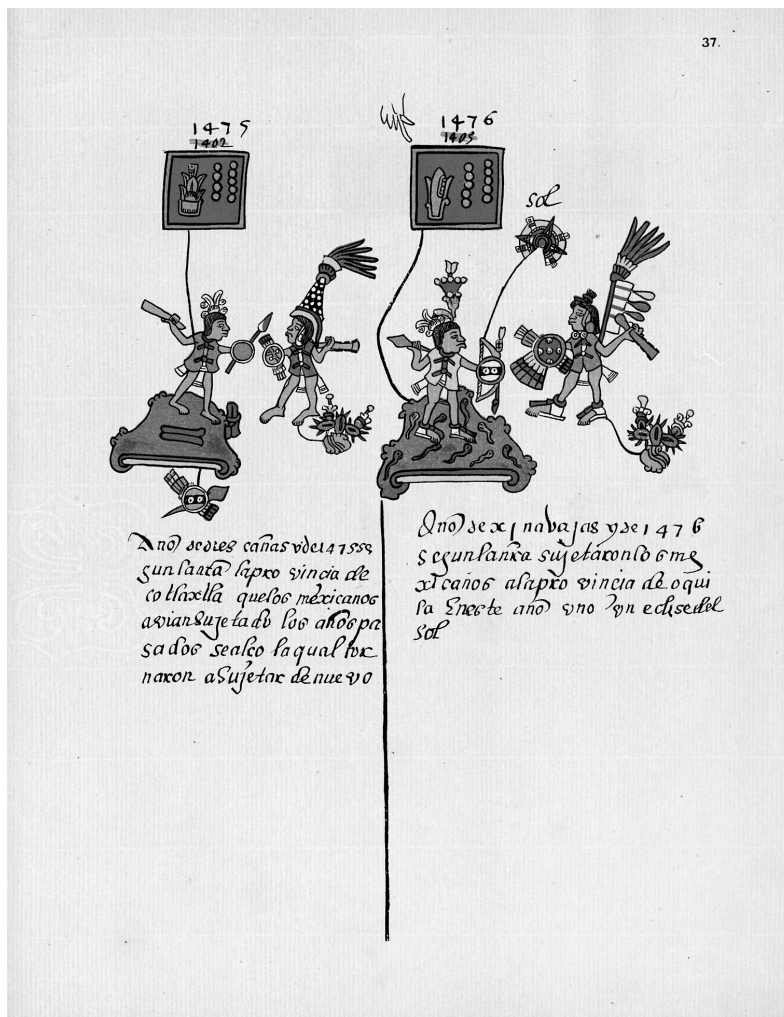 37.
1475
1402
1476
1403
sol
Año de dies cañas y de 1475 se
gun la nrã la pro vincia de
cotlaxtla que los mexicanos
avian sujetado los años pa
sados se alco la qual tor
naron a Sujetar de nuevo
Año de xj navajas y de 1476
segun la nrã sujetaron los me
xicanos a la pro vincia de oqui
la En este año vno vn eclise del
sol